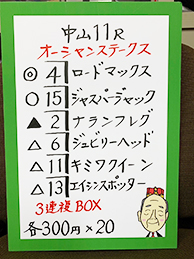 中山11R
オーシャンステークス
◎ 4 ロードマックス
○ 15 ジャスパーマック
▲ 2 ナランフレグ
△ 6 ジュビリーヘッド
△ 11 キミワクイーン
△ 13 エイシンスポッター
3連複BOX
各300円×20